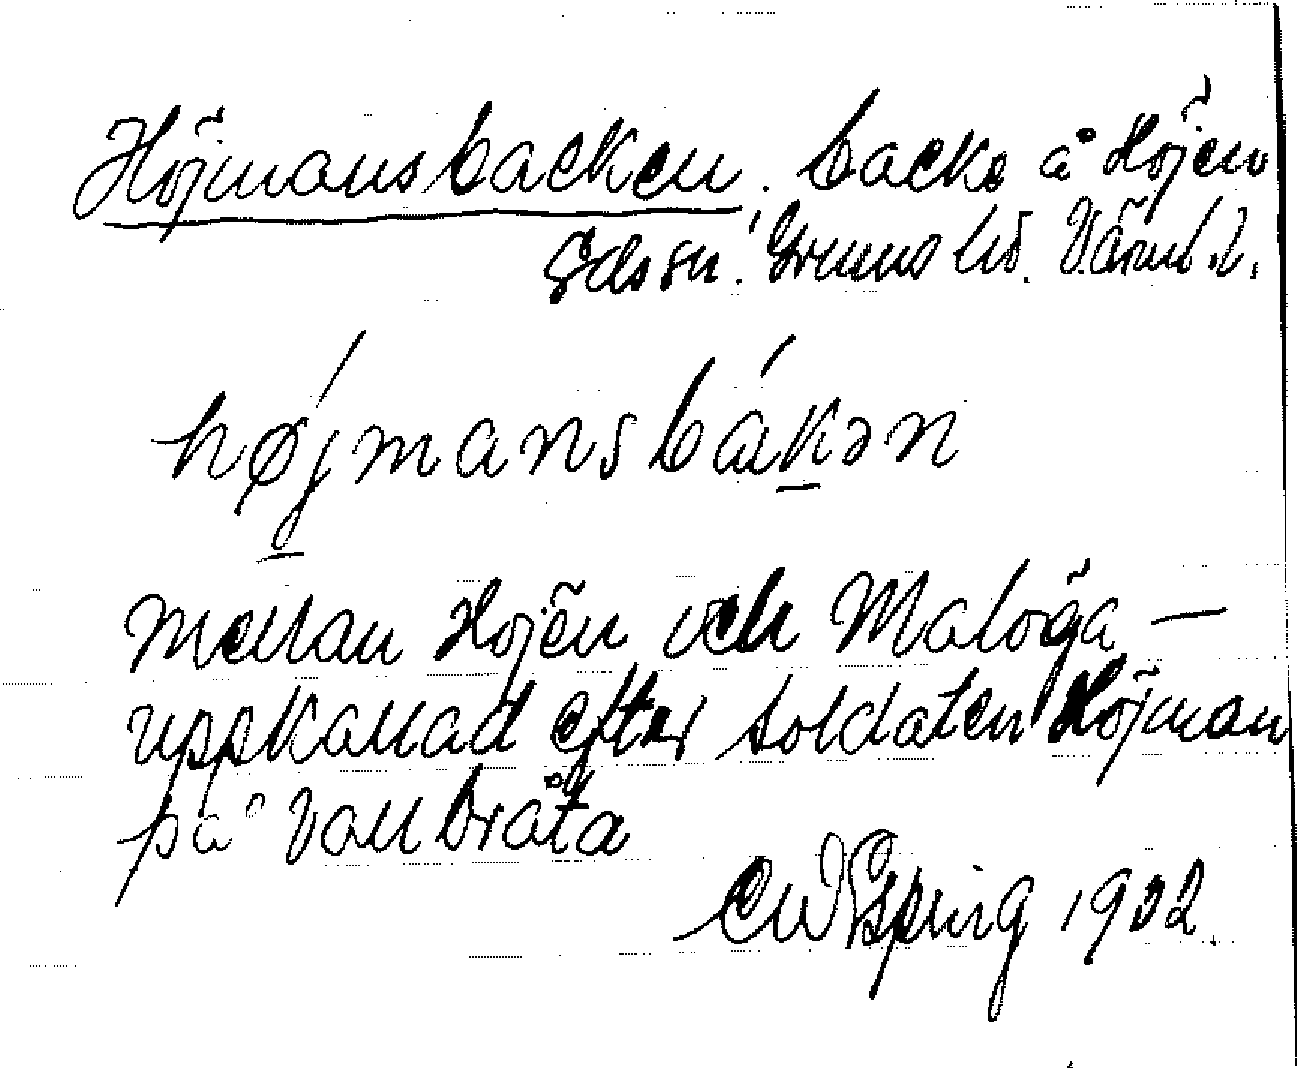 Höjmansbacken. backe å Höjen
Eds sn. Grums hd. Värml.l.
højmansbákən
mellan Höjen och Maloga —
uppkallad efter soldaten Höjman
på Vallbråta
1902